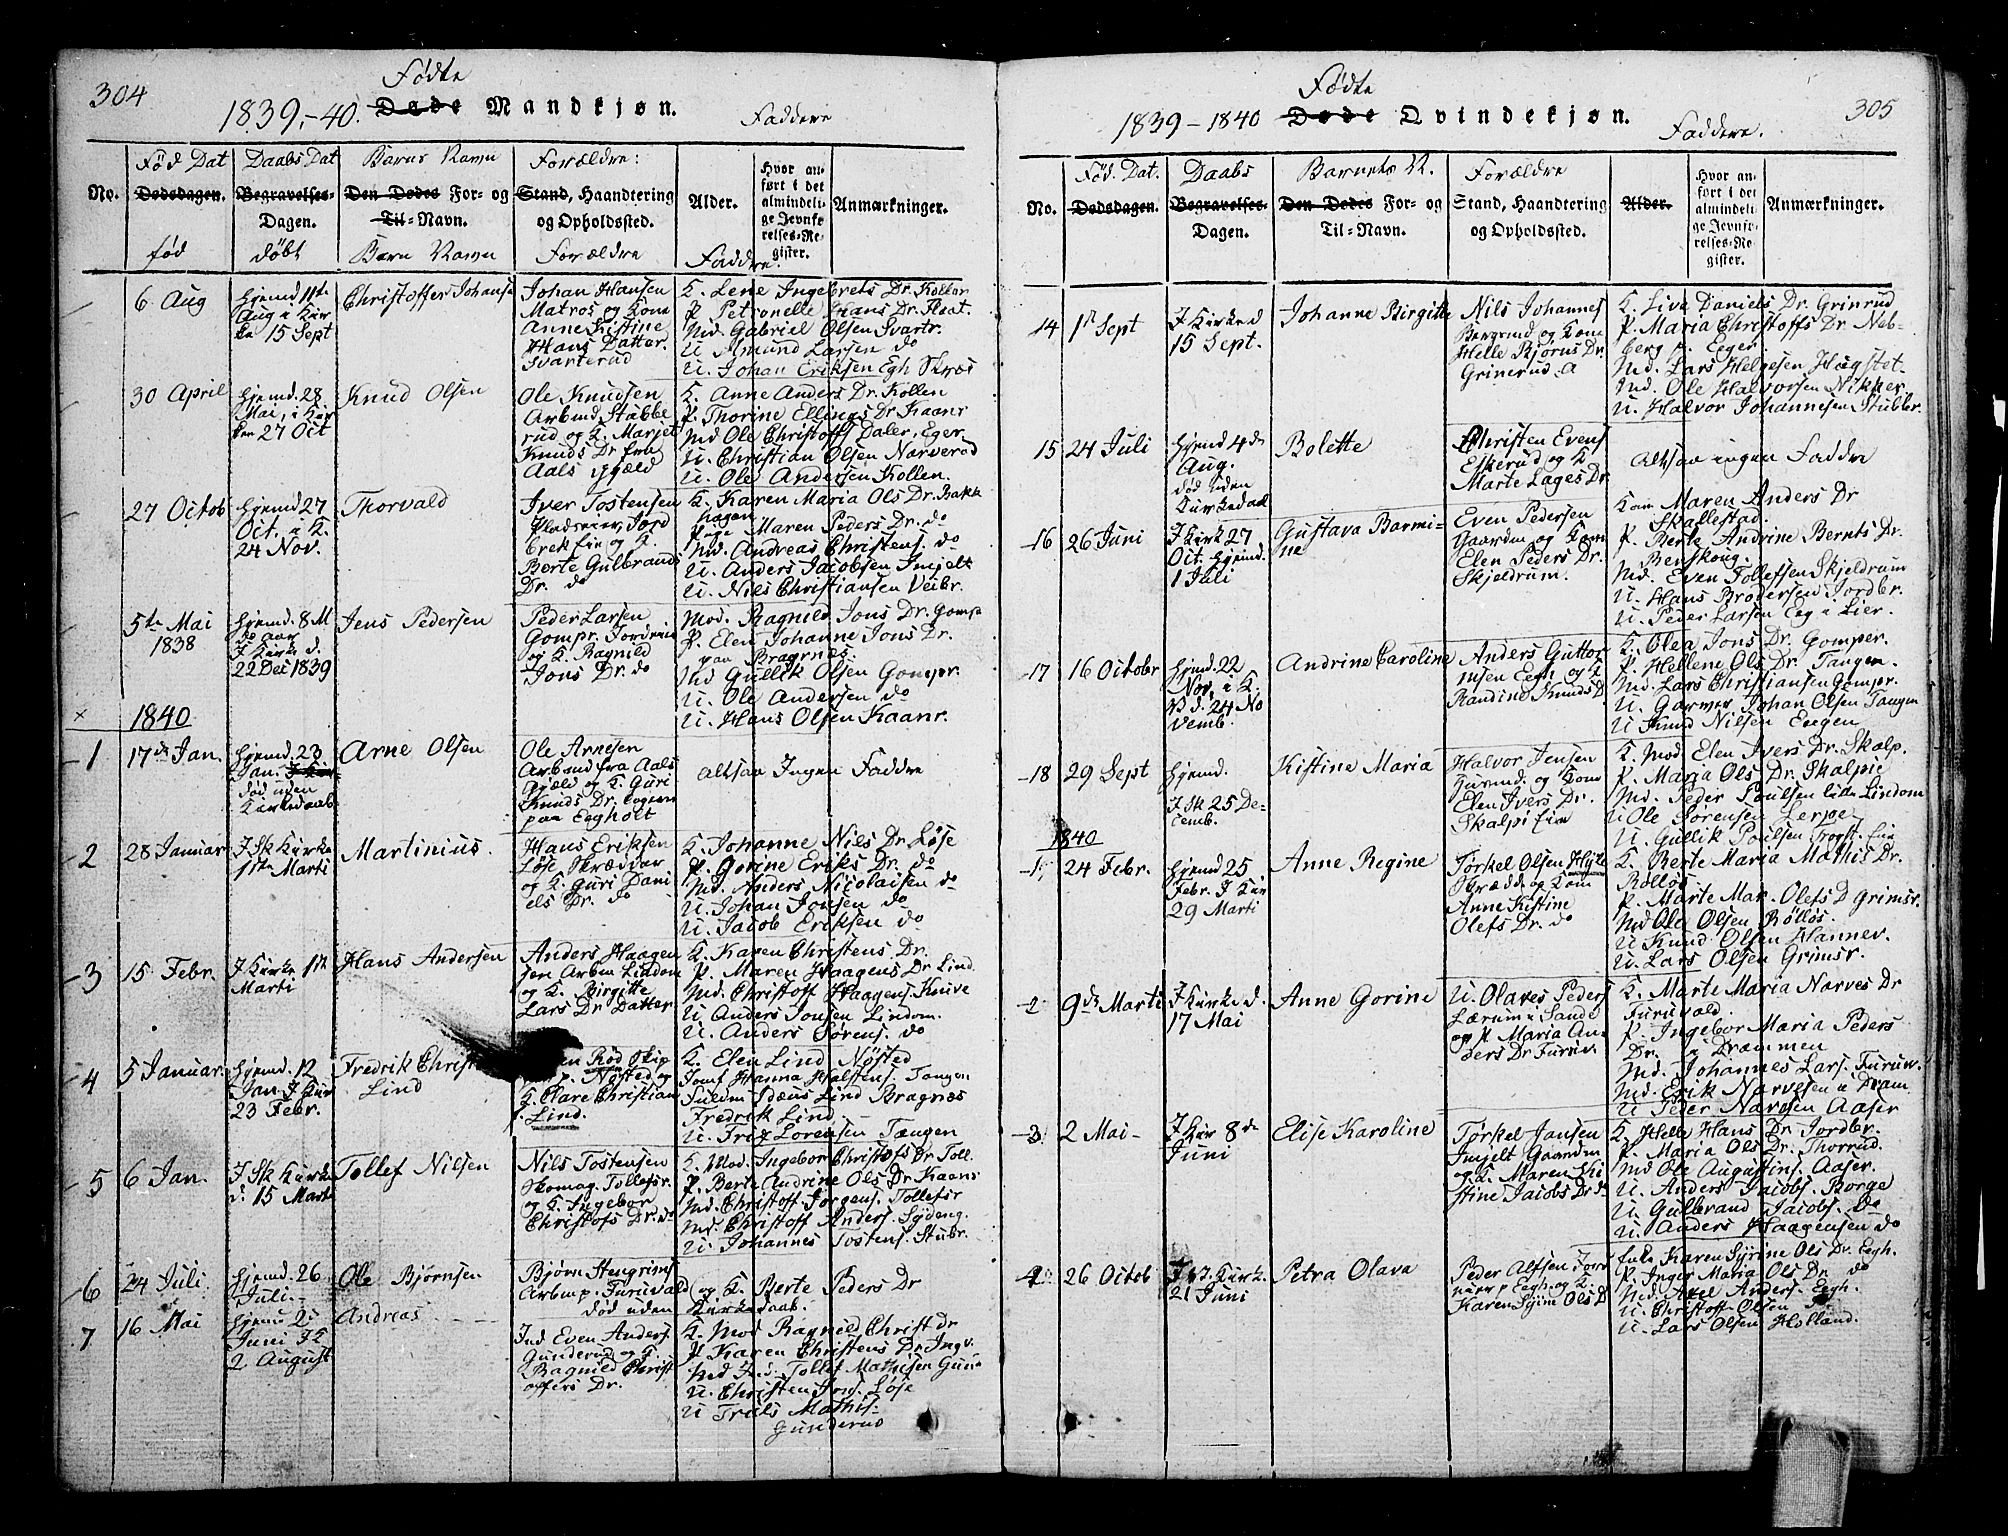 304
Fødte
1839,-40. Døde Mandkjøn.
Faddere
No.
Fød Dat
Dødsdagen.
fød
Daabs Dat
Begravelses-
Dagen.
døbt
Barns Navn
Den Dødes For- og
Til-Navn.
Barn Navn
Forældre:
Stand, Haandtering
og Opholdssted.
Forældre
Alder.
Faddre
Hvor an-
ført i det
almindeli-
ge Jevnfø-
relses-Re-
gister.
Anmærkninger.
6 Aug
hjemd 11te
Aug i Kir
den 15 Sept
Christoffer Johans
Johan Hansen
Matros og Kone
Anne Kistine
Hans Datter.
Svarterud
K. Lene Ingebrets Dr. Kollar
P. Petronelle Hans Dr. Flaat.
Md. Gabriel Olsen Svartr.
U. Amund Larsen do
U. Johan Eriksen Egh Skræs
30 April
hjemd. 28
Mai, i Kir
den 27 Oct
Knud Olsen
Ole Knudsen
Arbmd. Stubbe
rud og K. Marjet
Knuds Dr. fra
Aals Pgjæld
K. Anne Anders Dr. Kollen
P. Thorine Ellings Dr. Kaanr
Md Ole Christoffs Daler, Eger
U. Christian Olsen Narverud
U. Ole Andersen Kollen.
27 Octob
hjemd 27
Oct. i K.
24 Nov.
Thorvald
Iver Tostensen
Pladseier Jord
brek Eie og K.
Berte Gulbrands
Dr. do
K. Karen Maria Ols Dr. Bakk
hagen
Pige Maren Peders Dr. do
Md. Andreas Christens. do
U. Anders Jacobsen Imjelt
U. Nils Christiansen Veibr.
5te Mai
1838
hjemd. 8 M
do aar
I Kirke d.
22 Dec 1839
Jens Pedersen
Peder Larsen
Gompr. Jordeie
og K. Ragnild
Jons Dr. do
Mod. Ragnild Jons Dr. Gomp
P. Elen Johanne Jons Dr.
paa Bragrnæs.
Md Gullik Olsen Gompr.
U. Ole Andersen do
U. Hans Olsen Kaanr.
x 1840
1
17de Jan.
hjemd. 23
Jan. I Kir
død uden
Kirkedaab
Arne Olsen
Ole Arnesen
Arbmd fra Aals
Gjæld og K. Guri
Knuds Dr. logern
paa Eegholt
altsaa Ingen Faddre
2
28 Januar
I Sk Kirke
1ste Marti
Martinius.
Hans Eriksen
Løse Skrædder
og K. Guri Dani
els Dr. do
K. Johanne Nils Dr. Løse
P. Gorine Eriks Dr. do
Md. Anders Nicolaisen do
U. Johan Jonsen do
U. Jacob Eriksen do
3
15 Febr.
I Kirke 1st
Marti
Hans Andersen
Anders Haagen
sen Arbm Lindom
og K. Birgitte
Lars Dr Datter
K. Karen Christens Dr.
P. Maren Haagens Dr Lind.
Md. Christoff Haagens Knive
U. Anders Jonsen Lindom.
U. Anders Sørens. do
4
5 Januar.
hjemd. 12
Jan. I Kir
23 Febr.
Fredrik Christ
Lind
Rød Skip
p. Nøsted og
K. Clare Christian
f. Lind.
K. Elen Lind Nøsted
Jomf Hanna Halstens. Tangen
Fuldm Idæus Lind Bragnæs
Fredrik Lind
U. Friz Lorensen Tangen
5
6 Jan.
I Sk Kirke
d. 15 Marti
Tollef Nilsen
Nils Tostensen
Skomag. Tollefsr.
og K. Ingebor
Christofs Dr. do
K. Mod. Ingebor Christofs Dr Toll.
P. Berte Andrine Ols Dr Kaans
Md. Christoff Jorgens. Tollefsr
Md Christoff Anders. Sydeng.
U. Johannes Tostens. Stubr.
6
24 Juli
hjemd. 26
Juli.
Ole Bjørnsen
Bjørn Stengrims
Arbmp. Furuvald og K. Berte Peders Dr
død uden Kirkedaab.
7
16 Mai
hjemd 25
Juni I K
2 August
Andreas
Ind Even Anders.
Gunderud og K.
Ragnild Christ
offers Dr.
K. Mod Ragnild Christ Dr
P Karen Christens Dr Ingv.
Md Tollef Mathisen Gun
U. Christen Løse
U Truls Mathis-
Gunderud
305
Fødte
1839-1840 Døde Qvindekjøn.
Faddere.
No.
Fød. Dat.
Dødsdagen.
Daabs
Begravelses-
Dagen.
Barnets N.
Den Dødes For- og
Til-Navn.
Forældre
Stand, Haandtering
og Opholdssted.
Alder.
Hvor an-
ført i det
almindeli-
ge Jevnfø-
relses-Re-
gister.
Anmærkninger.
14
1st Sept
I Kirke d
15 Sept.
Johanne Birgitte
Nils Johannes
Bergmd og Kone
Helle Bjørns Dr.
Grinerud
K. Liva Daniels Dr. Grinrud
P. Maria Christoffs Dr. Neb-
berg p. Eger
Md. Lars Helgesen Hagstet
Md. Ole Halvorsen Nikker
U. Halvor Johannesen Stubbr.
15
24 Juli
hjemd 4de
Aug.
død uden
Kirkedaab
Bolette
Christen Evens
Eskerud og K
Marte Lages Dr
Altsaa ingen Faddre
16
26 Juni
I Kirk 27
Oct. hjemd.
1 Juli
Gustava Barmi-
ne
Even Pedersen
Gaardm og Kone
Elen Peders Dr.
Skjeldrum.
Kone Maren Anders Dr
Skallestad.
P. Berte Andrine Bernts Dr.
Benskoug.
Md. Even Tollefsen Skjeldrum
U. Hans Brodersen Jordbr.
U. Peder Larsen Eeg i Lier.
17
16 Octobr
hjemd. 22
Nov. i K.
B d. 24 No
vemb.
Andrine Caroline
Anders Guttor
msen Eegh og K
Randine Knuds D
K. Olea Jons Dr. Gomper.
P. Hellene Ols Dr. Tangen.
Md. Lars Christiansen Gompr.
U. Garmer Johan Olsen Tangen
U Knud Nilsen Engen
18
29 Sept
hjemd.
I Sk 25 De-
cemb.
Kistine Maria
Halvor Jensen
Furumd. og Kone
Elen Ivers Dr.
Skalpi Eie
K. Mod Elen Ivers Dr. Skalp.
P. Maria Ols Dr. Skalpie
Md. Peder Poulsen lille Lindom
U Ole Sørensen Lerpe
U. Gullik Poulsen Trogst. Eie
1840
1
24 Febr.
hjemd 25
Febr. I Kir
29 Marti
Anne Regine
Torkel Olsen
Skrædd. og Kone
Anne Kistine
Olefs Dr. do
K. Berte Maria Mathis Dr.
Rølløs
P. Marte Mar. Olefs D Grimsr.
Md Ole Olsen Rølløs.
U Knud Olsen Hannev.
U. Lars Olsen Grimsr.
2
9de Marti
I Kirke d.
17 Mai
Anne Gorine
U. Olaves Peders
Lærum i Sand
og P. Maria An-
ders Dr Furuv.
K. Marte Maria Narves Dr
Furuvald
P. Ingebor Maria Peders
Dr. i Drammen
Md. Johannes Lars. Furuv.
Md. Erik Narvesen i Dram
U Peder Narvesen Aaser
3
2 Mai
I Kir 8de
Juni
Elise Karoline
Torkel Jansen
Imjelt Gaardm
og K. Maren Ki
stine Jacobs Dr do
K. Helle Hans Dr. Jordbr.
P. Maria Ols Dr. Thorrud.
Md Ole Augustins. Aaser.
U. Anders Jacobs. Borge
U. Gulbrand Jacobs. do
U. Anders Haagensen do
26 Octob
Kirk.
21 Juni
Petra Olava
Peder Alfsen
Eegh. og K.
Karen Syrine Ols D
Karen Syrine Ols Dr. Eegh.
P. Inger Maria Ols Dr. do
Md. Axel Anders. Eegh.
U. Christoff Olsen do
U. Lars Olsen Holland.